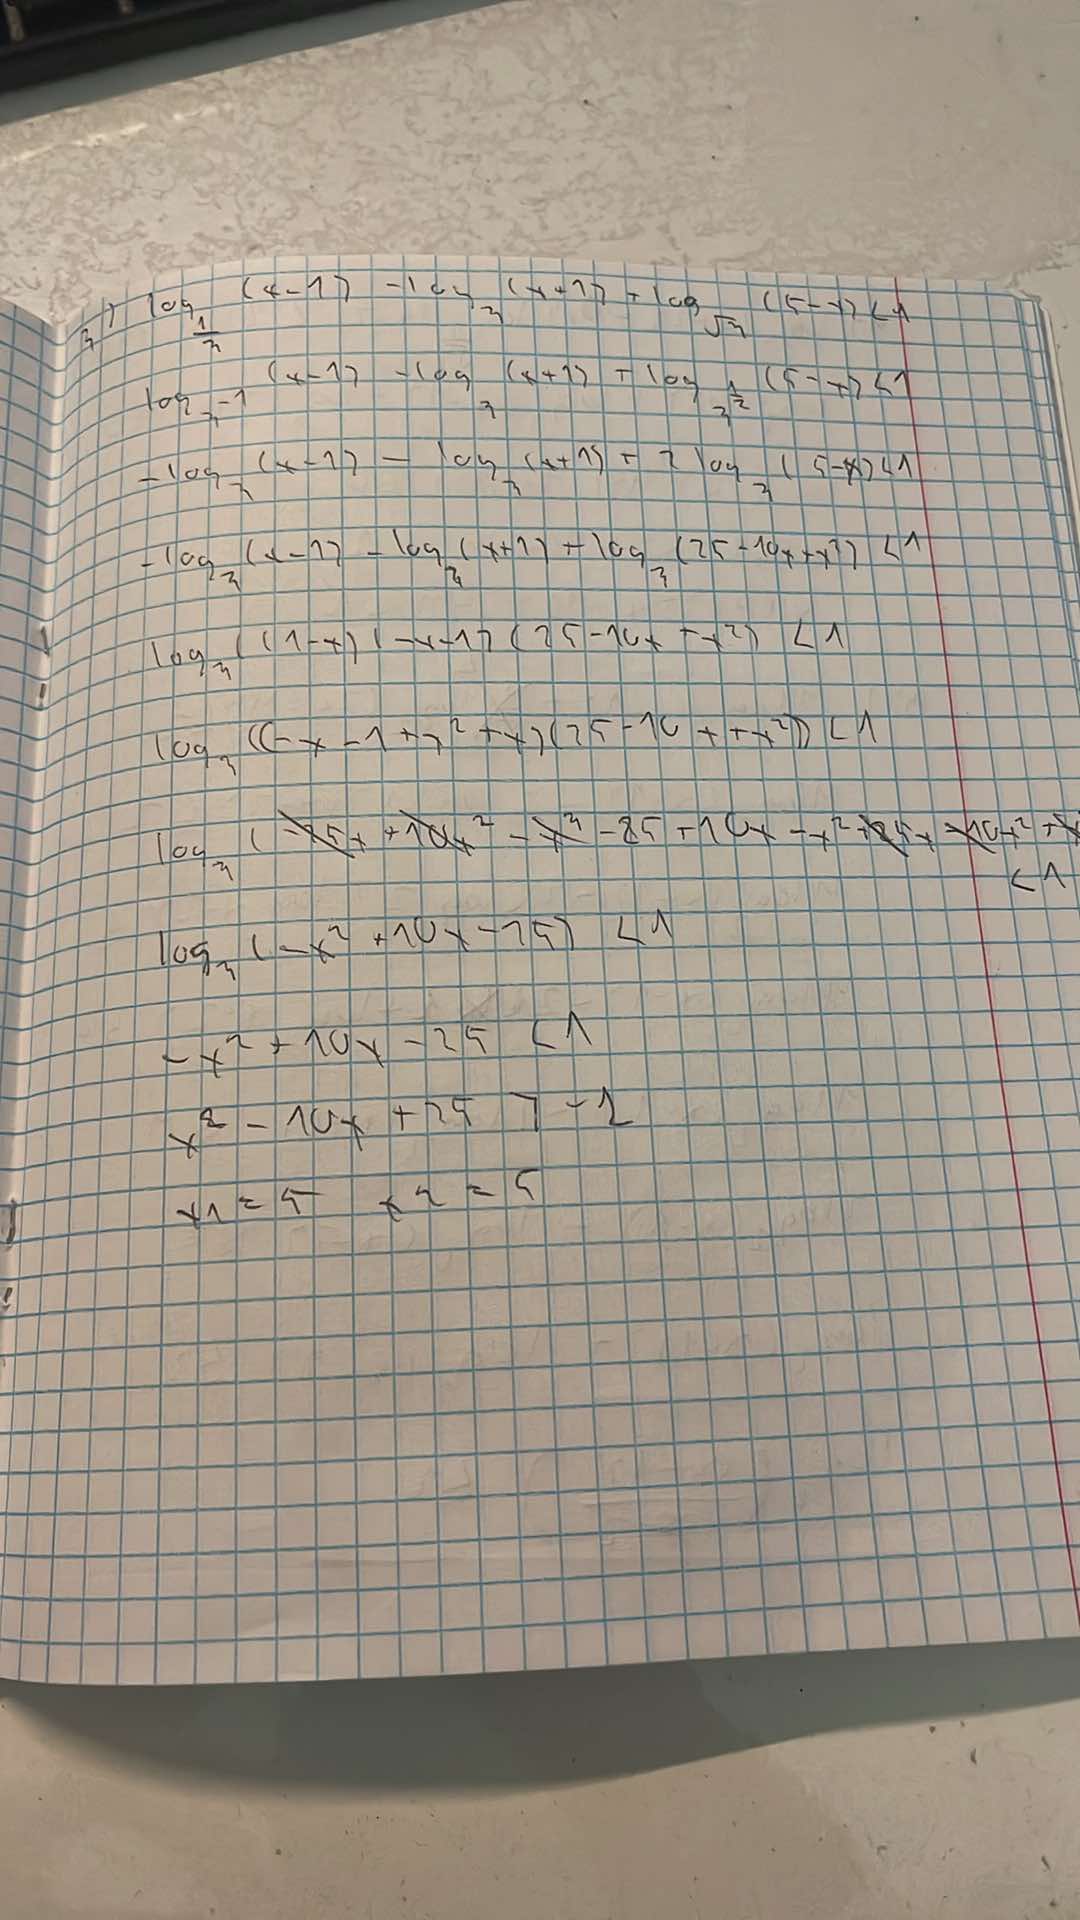 3) log_{1/3} (x-1) - log_3 (x+1) + log_{√3} (5-x) < 1
log_{3^{-1}} (x-1) - log_3 (x+1) + log_{3^{1/2}} (5-x) < 1
-log_3 (x-1) - log_3 (x+1) + 2 log_3 (5-x) < 1
-log_3 (x-1) - log_3 (x+1) + log_3 (25-10x+x²) < 1
log_3 ((1-x)(-x-1)(25-10x+x²) < 1
log_3 ((-x-1+x²+x)(25-10x+x²)) < 1
log_3 (-25x+10x²-x³-25+10x-x²+25x-10x²+
< 1
log_3 (-x²+10x-25) < 1
-x²+10x-25 < 1
x²-10x+25 > -1
x1=5 x2=5